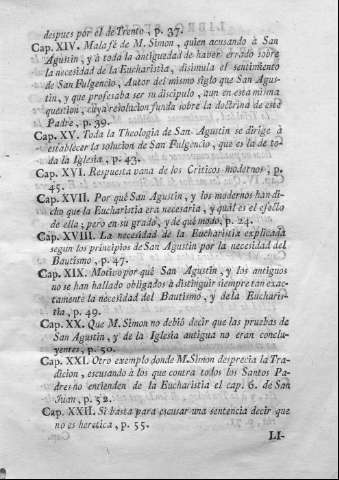 despues por el de Trento, p. 37.
Cap. XIV. Mala fé de M. Simon, quien acusando à San
Agustin, y à toda la antiguedad de haver errado sobre
la necesidad de la Eucharistia, disimula el sentimiento
de San Fulgencio, Autor del mismo siglo que San Agus-
tin, y que profesaba ser su discipulo, aun en esta misma
question, cuya resolucion funda sobre la doctrina de este
Padre, p. 39.
Cap. XV. Toda la Theologia de San Agustin se dirige à
establecer la solucion de San Fulgencio, que es la de to-
da la Iglesia, p. 43.
Cap. XVI. Respuesta vana de los Criticos modernos, p.
45.
Cap. XVII. Por què San Agustin, y los modernos han di-
cho que la Eucharistia era necesaria, y quàl es el efecto
de ella; pero en su grado, y de què modo, p. 24.
Cap. XVIII. La necesidad de la Eucharistia explicada
segun los principios de San Agustin por la necesidad del
Bautismo, p. 47.
Cap. XIX. Motivo por què San Agustin, y los antiguos
no se han hallado obligados à distinguir siempre tan exac-
tamente la necesidad del Bautismo, y de la Eucharis-
tia, p. 49.
Cap. XX. Que M. Simon no debiò decir que las pruebas de
San Agustin, y de la Iglesia antigua no eran conclu-
yentes, p. 50.
Cap. XXI. Otro exemplo donde M. Simon desprecia la Tra-
dicion, escusando à los que contra todos los Santos Pa-
dres no entienden de la Eucharistia el cap. 6. de San
Juan, p. 52.
Cap. XXII. Si basta para escusar una sentencia decir que
no es heretica, p. 55.
LI-